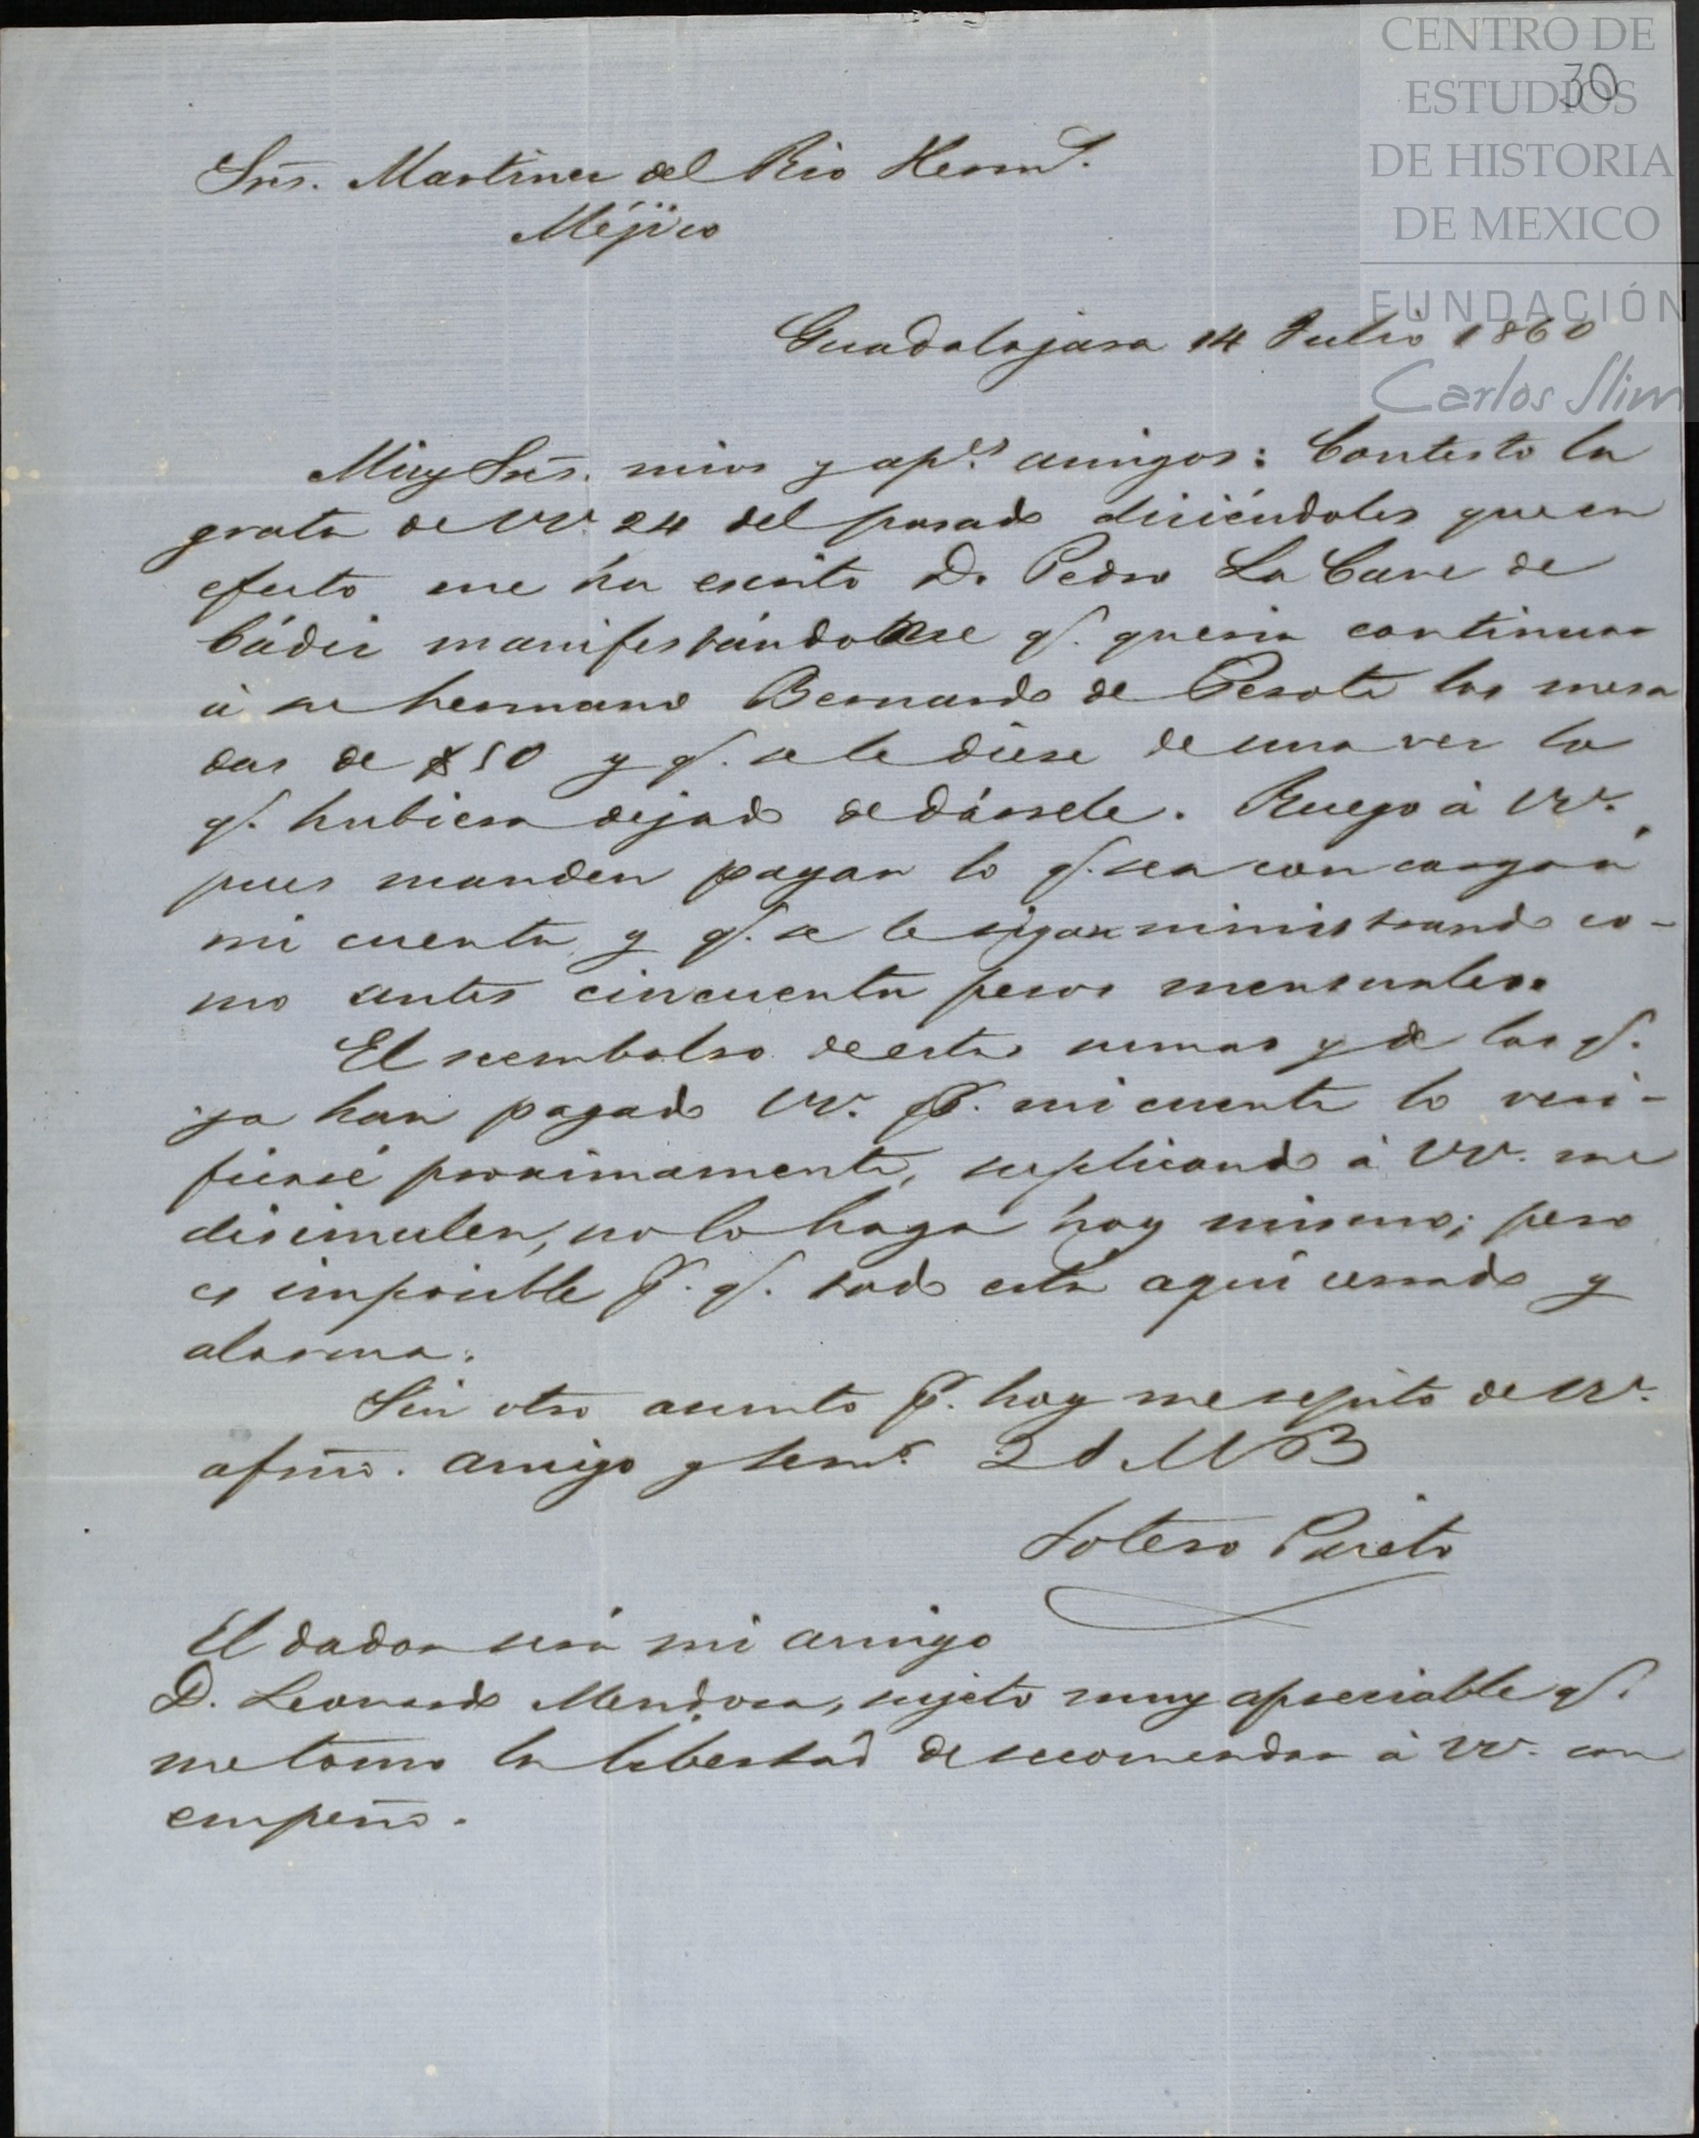 CENTRO DE
ESTUDIOS
DE HISTORIA
DE MEXICO
FUNDACIÓN
Carlos Slim
30
Sres. Martinez del Rio Herms.
Méjico
Guadalajara 14 Julio 1860
Muy Sres. mios y apes. amigos: Contesto la
grata de VV. 24 del pasado diciéndoles que en
efecto me ha escrito D. Pedro La Cave de
Cádiz manifestándome q. queria continuar
á su hermano Bernardo de Perote las mesa
das de $50 y q. se le diese de una vez lo
q. hubiera dejado de dársele. Ruego à VV.
pues manden pagar lo q. sea con cargo á
mi cuenta y q. se le sigan ministrando co-
mo antes cincuenta pesos mensuales.
El reembolso de estas sumas y de las q.
ya han pagado VV. p. mi cuenta lo veri-
ficaré proximamente, suplicando à VV. me
disimulen, no lo haga hoy mismo; pero
es imposible p. q. todo está aquí cerrado y
alarma.
Sin otro asunto p. hoy me repito de VV.
afmo. amigo y serv. Q S M B
Sotero Prieto
El dador será mi amigo
D. Leonardo Mendoza, sujeto muy apreciable q.
me tomo la libertad de recomendar à VV. con
empeño.